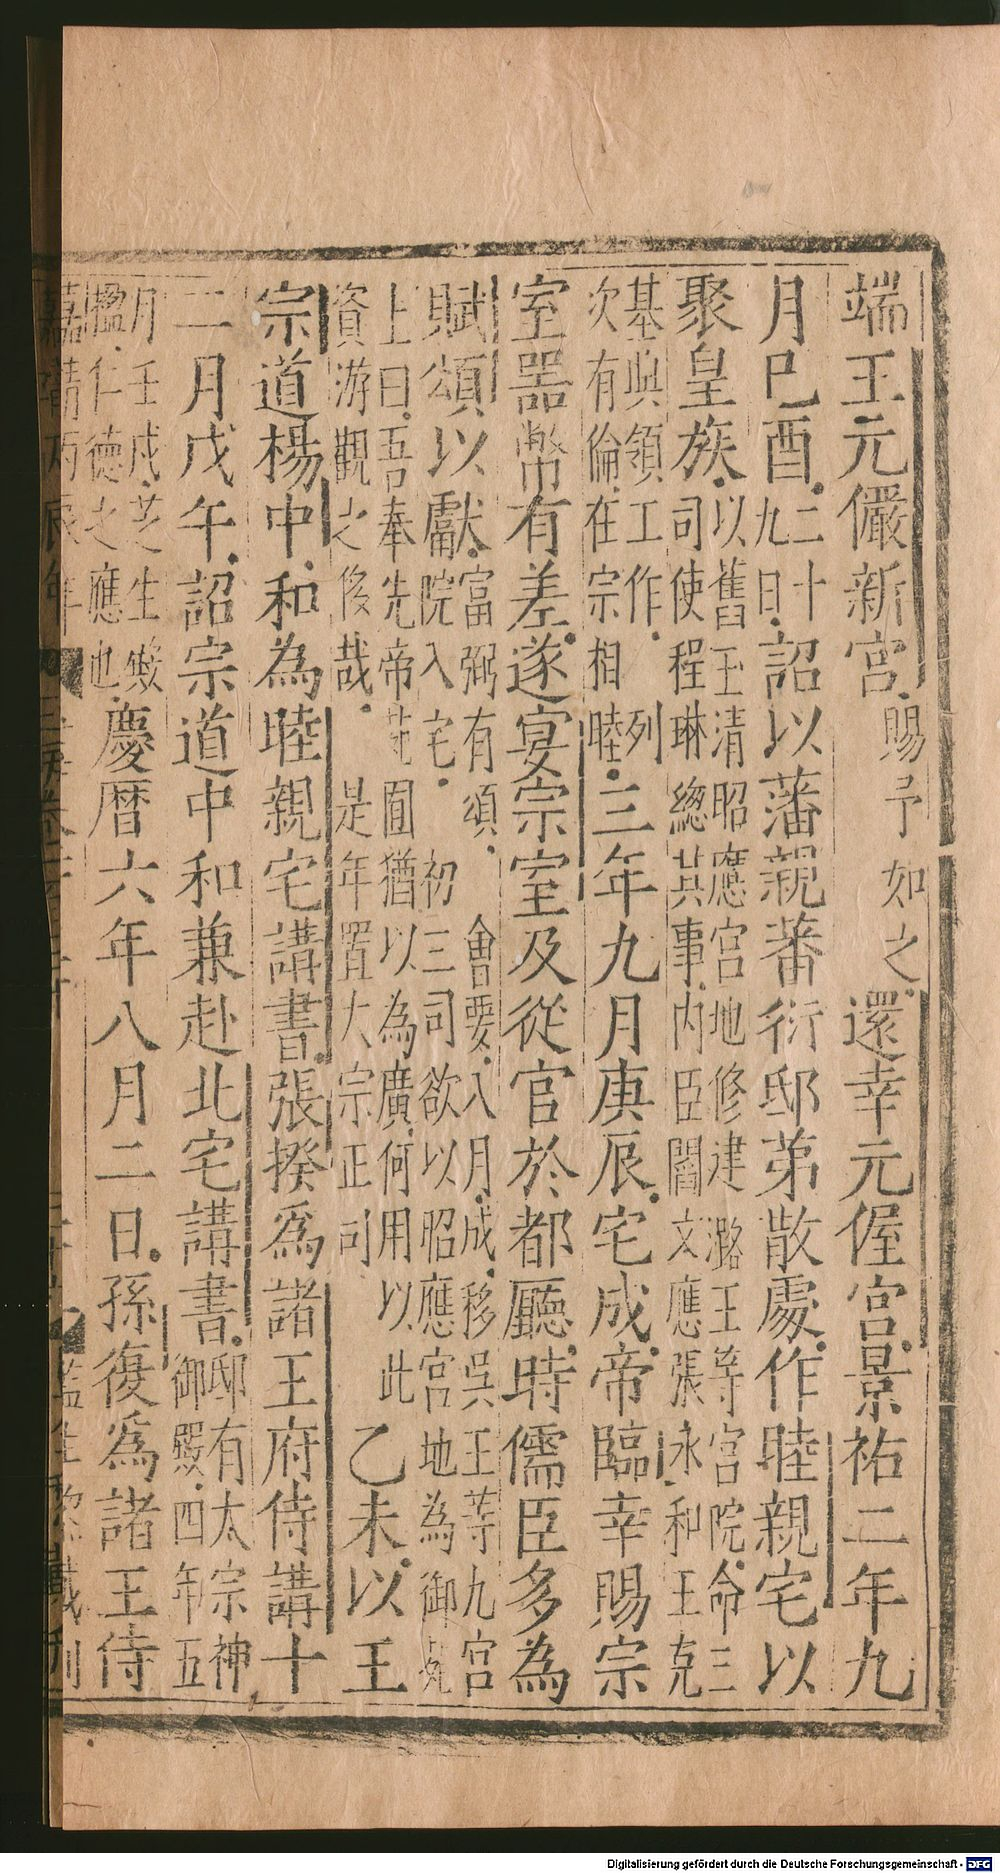 端王元儼新宮賜予如之還幸元偓宮景祐二年九
月己酉二十九日詔以藩親蕃衍邸第散處作睦親宅以
聚皇族以舊玉清昭應宮地修建潞王等宮院命三司使程琳總其事內臣閻文應張永和王克
基與領工作列次有倫在宗相睦三年九月庚辰宅成帝臨幸賜宗
室器幣有差遂宴宗室及從官於都廳時儒臣多為
賦頌以獻富弼有頌會要八月成移吳王等九宮院入宅初三司欲以昭應宮地為御苑
上曰吾奉先帝苑囿猶以為廣何用以此資游觀之侈哉是年置大宗正司乙未以王
宗道楊中和為睦親宅講書張揆為諸王府侍講十
二月戊午詔宗道中和兼赴北宅講書邸有太宗神御殿四年五
月壬戌芝生殿楹仁德之應也慶曆六年八月二日孫復為諸王侍
嘉靖丙辰年
監生黎戴刊
Digitalisierung gefördert durch die Deutsche Forschungsgemeinschaft - DFG